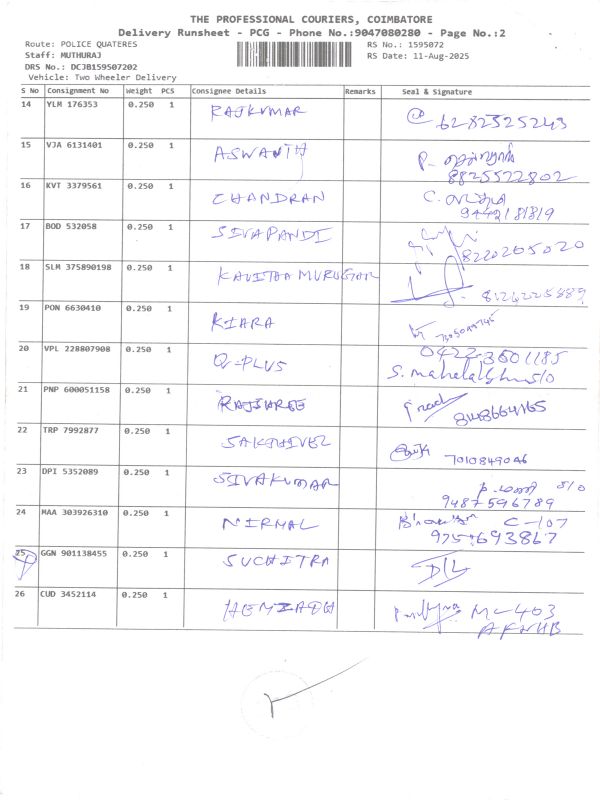 THE PROFESSIONAL COURIERS, COIMBATORE
Delivery Runsheet - PCG - Phone No.:9047080280 - Page No.:2
Route: POLICE QUATERES RS No.: 1595072
Staff: MUTHURAJ RS Date: 11-Aug-2025
DRS No.: DCJB159507202
Vehicle: Two Wheeler Delivery
S No Consignment No Weight PCS Consignee Details Remarks Seal & Signature
14 YLM 176353 0.250 1 RAJKUMAR 6282325243
15 VJA 6131401 0.250 1 ASWANTH P.
8825522802
16 KVT 3379561 0.250 1 CHANDRAN C.
9442181819
17 BOD 532058 0.250 1 SIVAPANDI 8220265020
18 SLM 375890198 0.250 1 KAVITHA MURUGAN 8124225889
19 PON 6630410 0.250 1 KIARA
20 VPL 228807908 0.250 1 Q-PLUS 0422-3601185
S. mahalakshmi S/O
21 PNP 600051158 0.250 1 RAJSHREE 8148664165
22 TRP 7992877 0.250 1 SAKTHIVEL 7010849046
23 DPI 5352089 0.250 1 SIVAKUMAR S/O
9487596789
24 MAA 303926310 0.250 1 NIRMAL C-107
25 GGN 901138455 0.250 1 SUCHITRA D/L
26 CUD 3452114 0.250 1 HEMNADH M-403